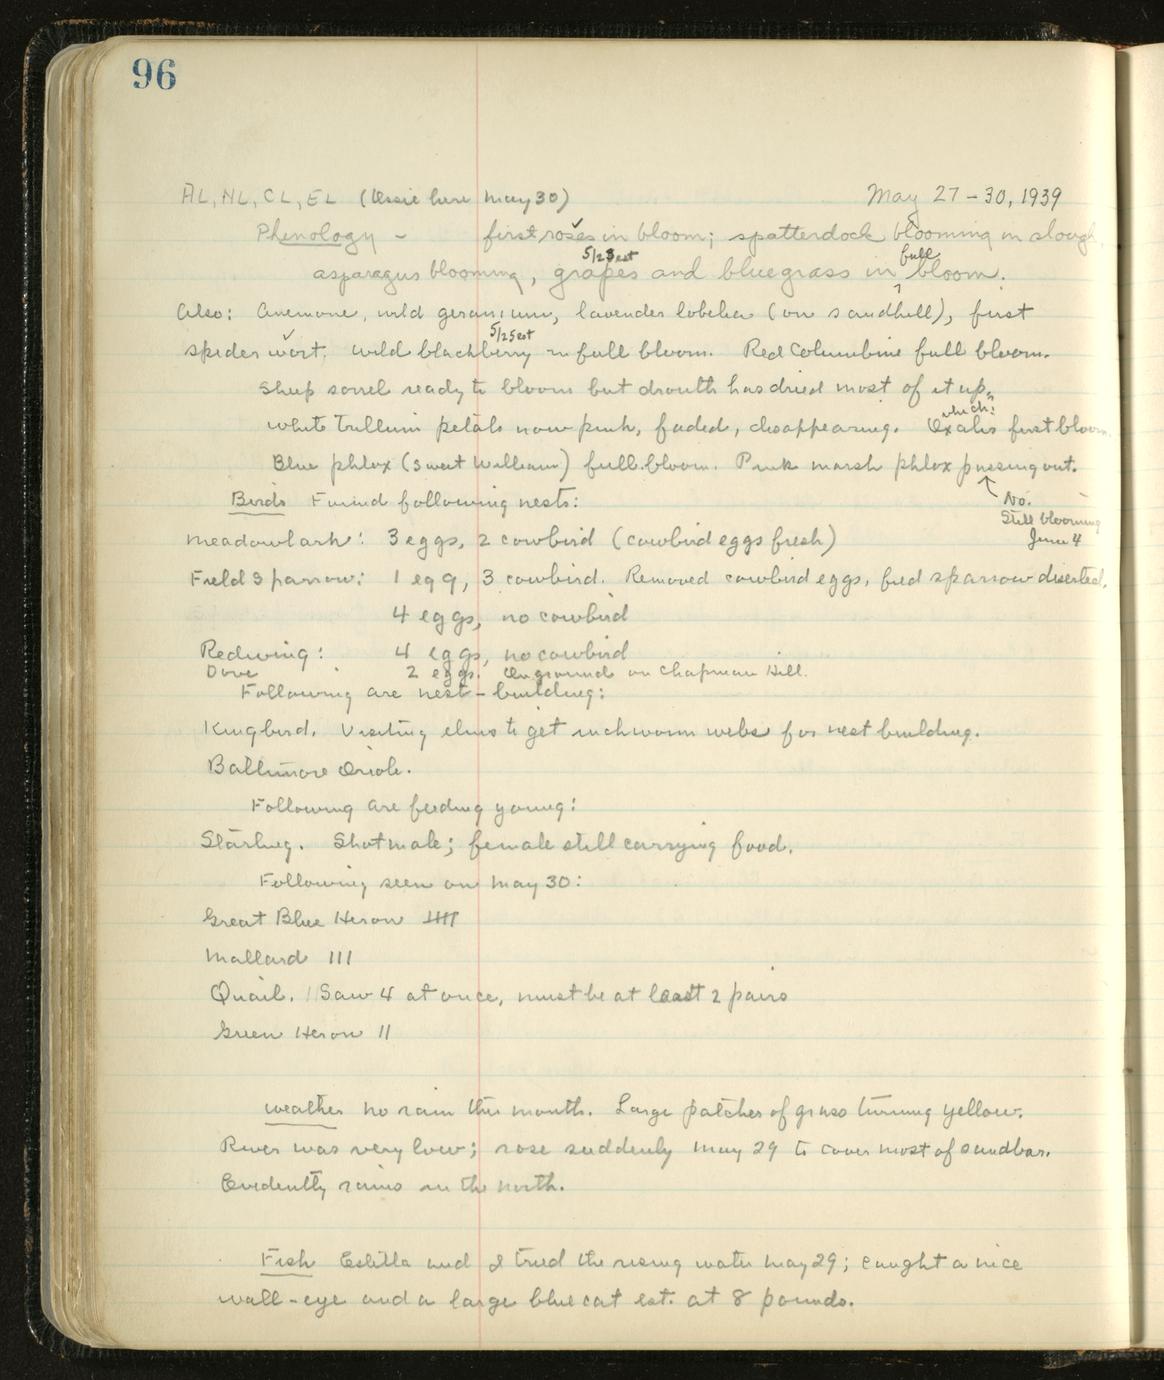 96
AL, NL, CL, EL (Ossie here May 30) May 27-30, 1939
Phenology - first roses in bloom; spatterdock blooming in slough,
5/23 est full
asparagus blooming, grapes and bluegrass in ^ bloom.
Also: Anemone, wild geranium, lavender lobelia (on sandhill), first
5/25 est
spider wort. wild blackberry in full bloom. Red Columbine full bloom.
Sheep sorrel ready to bloom but drouth has dried most of it up.
which?
White Trillium petals now pink, faded, disappearing. Oxalis first bloom.
Blue phlox (Sweet William) full bloom. Pink marsh phlox passing out.
No.
Still blooming
June 4
Birds Found following nests:
Meadowlark: 3 eggs, 2 cowbird (cowbird eggs fresh)
Field Sparrow: 1 egg, 3 cowbird. Removed cowbird eggs, but sparrow deserted.
4 eggs, no cowbird
Redwing: 4 eggs, no cowbird
Dove 2 eggs. On ground on Chapman Hill.
Following are nest-building:
Kingbird. Visiting elms to get inchworm webs for nest building.
Baltimore Oriole.
Following are feeding young:
Starling. Shot male; female still carrying food.
Following seen on May 30:
Great Blue Heron IIII
Mallard III
Quail. Saw 4 at once, must be at least 2 pairs
Green Heron II
Weather no rain this month. Large patches of grass turning yellow.
River was very low; rose suddenly May 29 to cover most of sandbar.
Evidently rains in the north.
Fish Estella and I tried the rising water May 29; caught a nice
wall-eye and a large blue cat est. at 8 pounds.